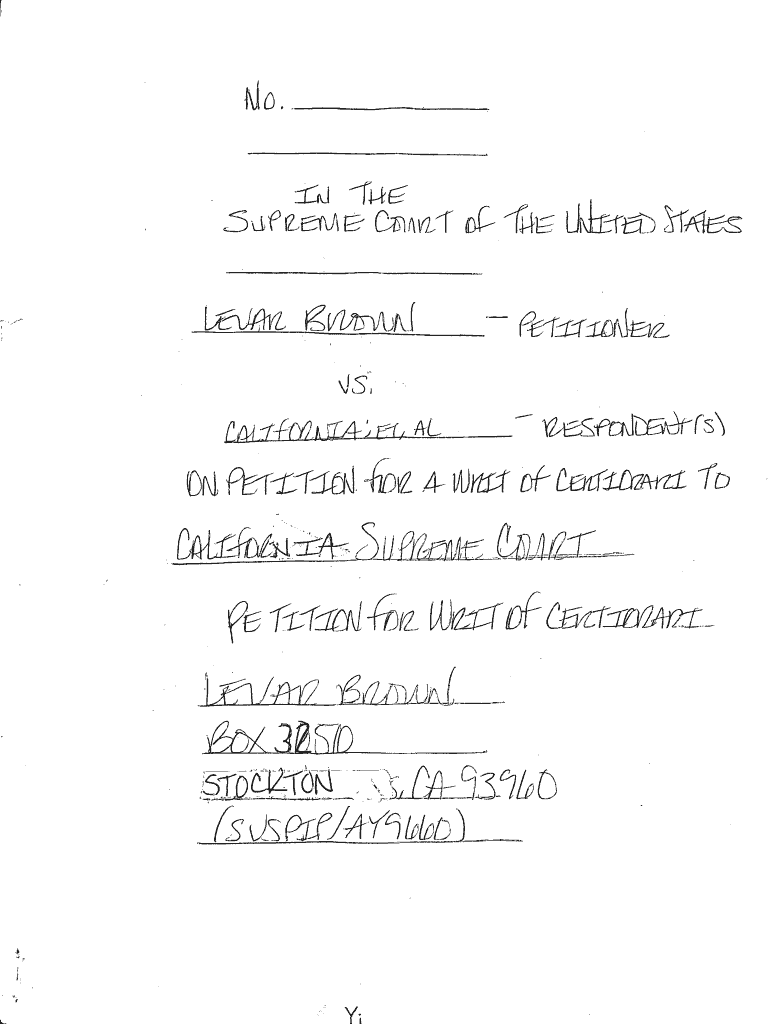 No.
IN THE
SUPREME COURT OF THE UNITED STATES
LEVAR BROWN - PETITIONER
VS.
CALIFORNIA; ET, AL - RESPONDENT(S)
ON PETITION FOR A WRIT OF CERTIORARI TO
CALIFORNIA SUPREME COURT
PETITION FOR WRIT OF CERTIORARI
LEVAR BROWN
BOX
STOCKTON, CA 93960
(SVSPIP/AY9660)
Yi